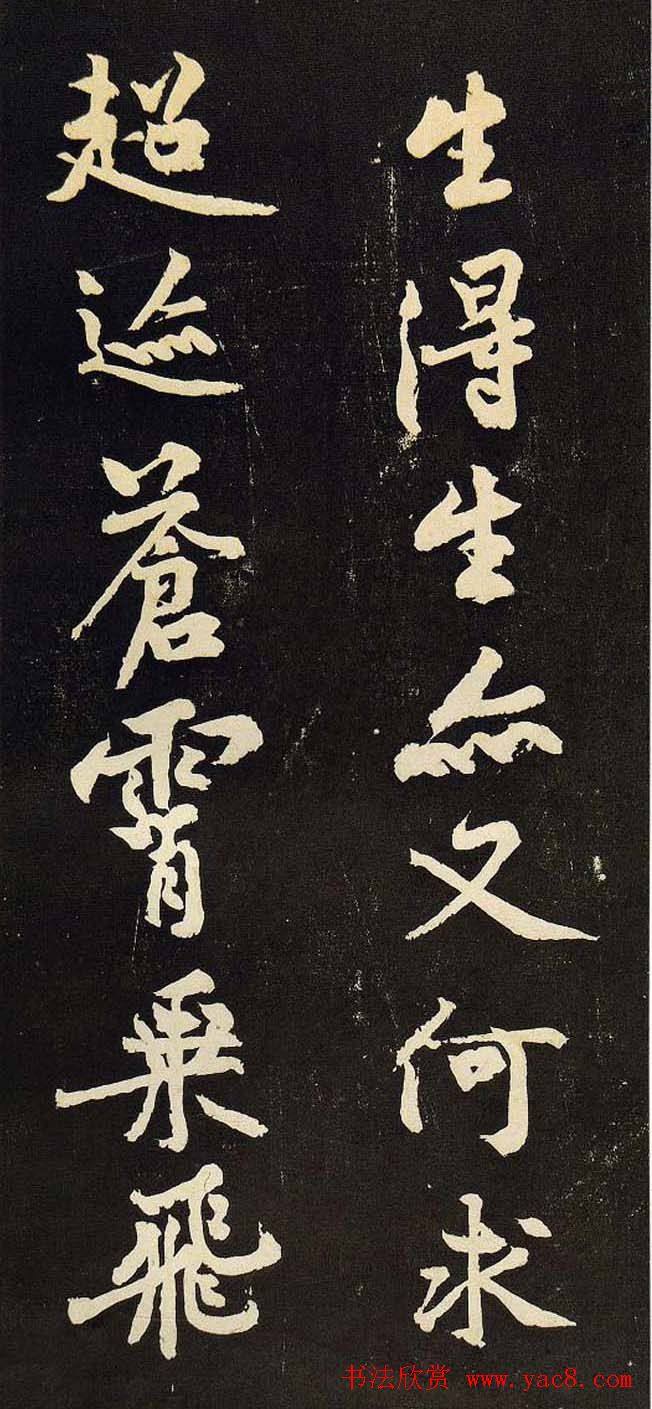 生得生亦又何求
超迹蒼霄乗飛
书法欣赏 www.yac8.com